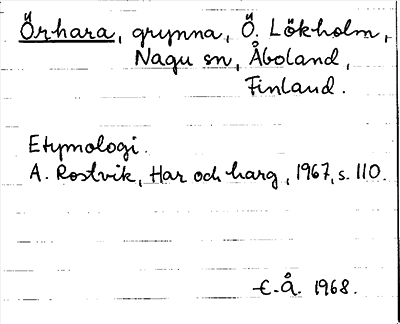 Örhara, grynna, Ö. Lökholm,
Nagu sn, Åboland,
Finland.
Etymologi.
A. Rostvik, Har och harg, 1967, s. 110.
E.Å. 1968.